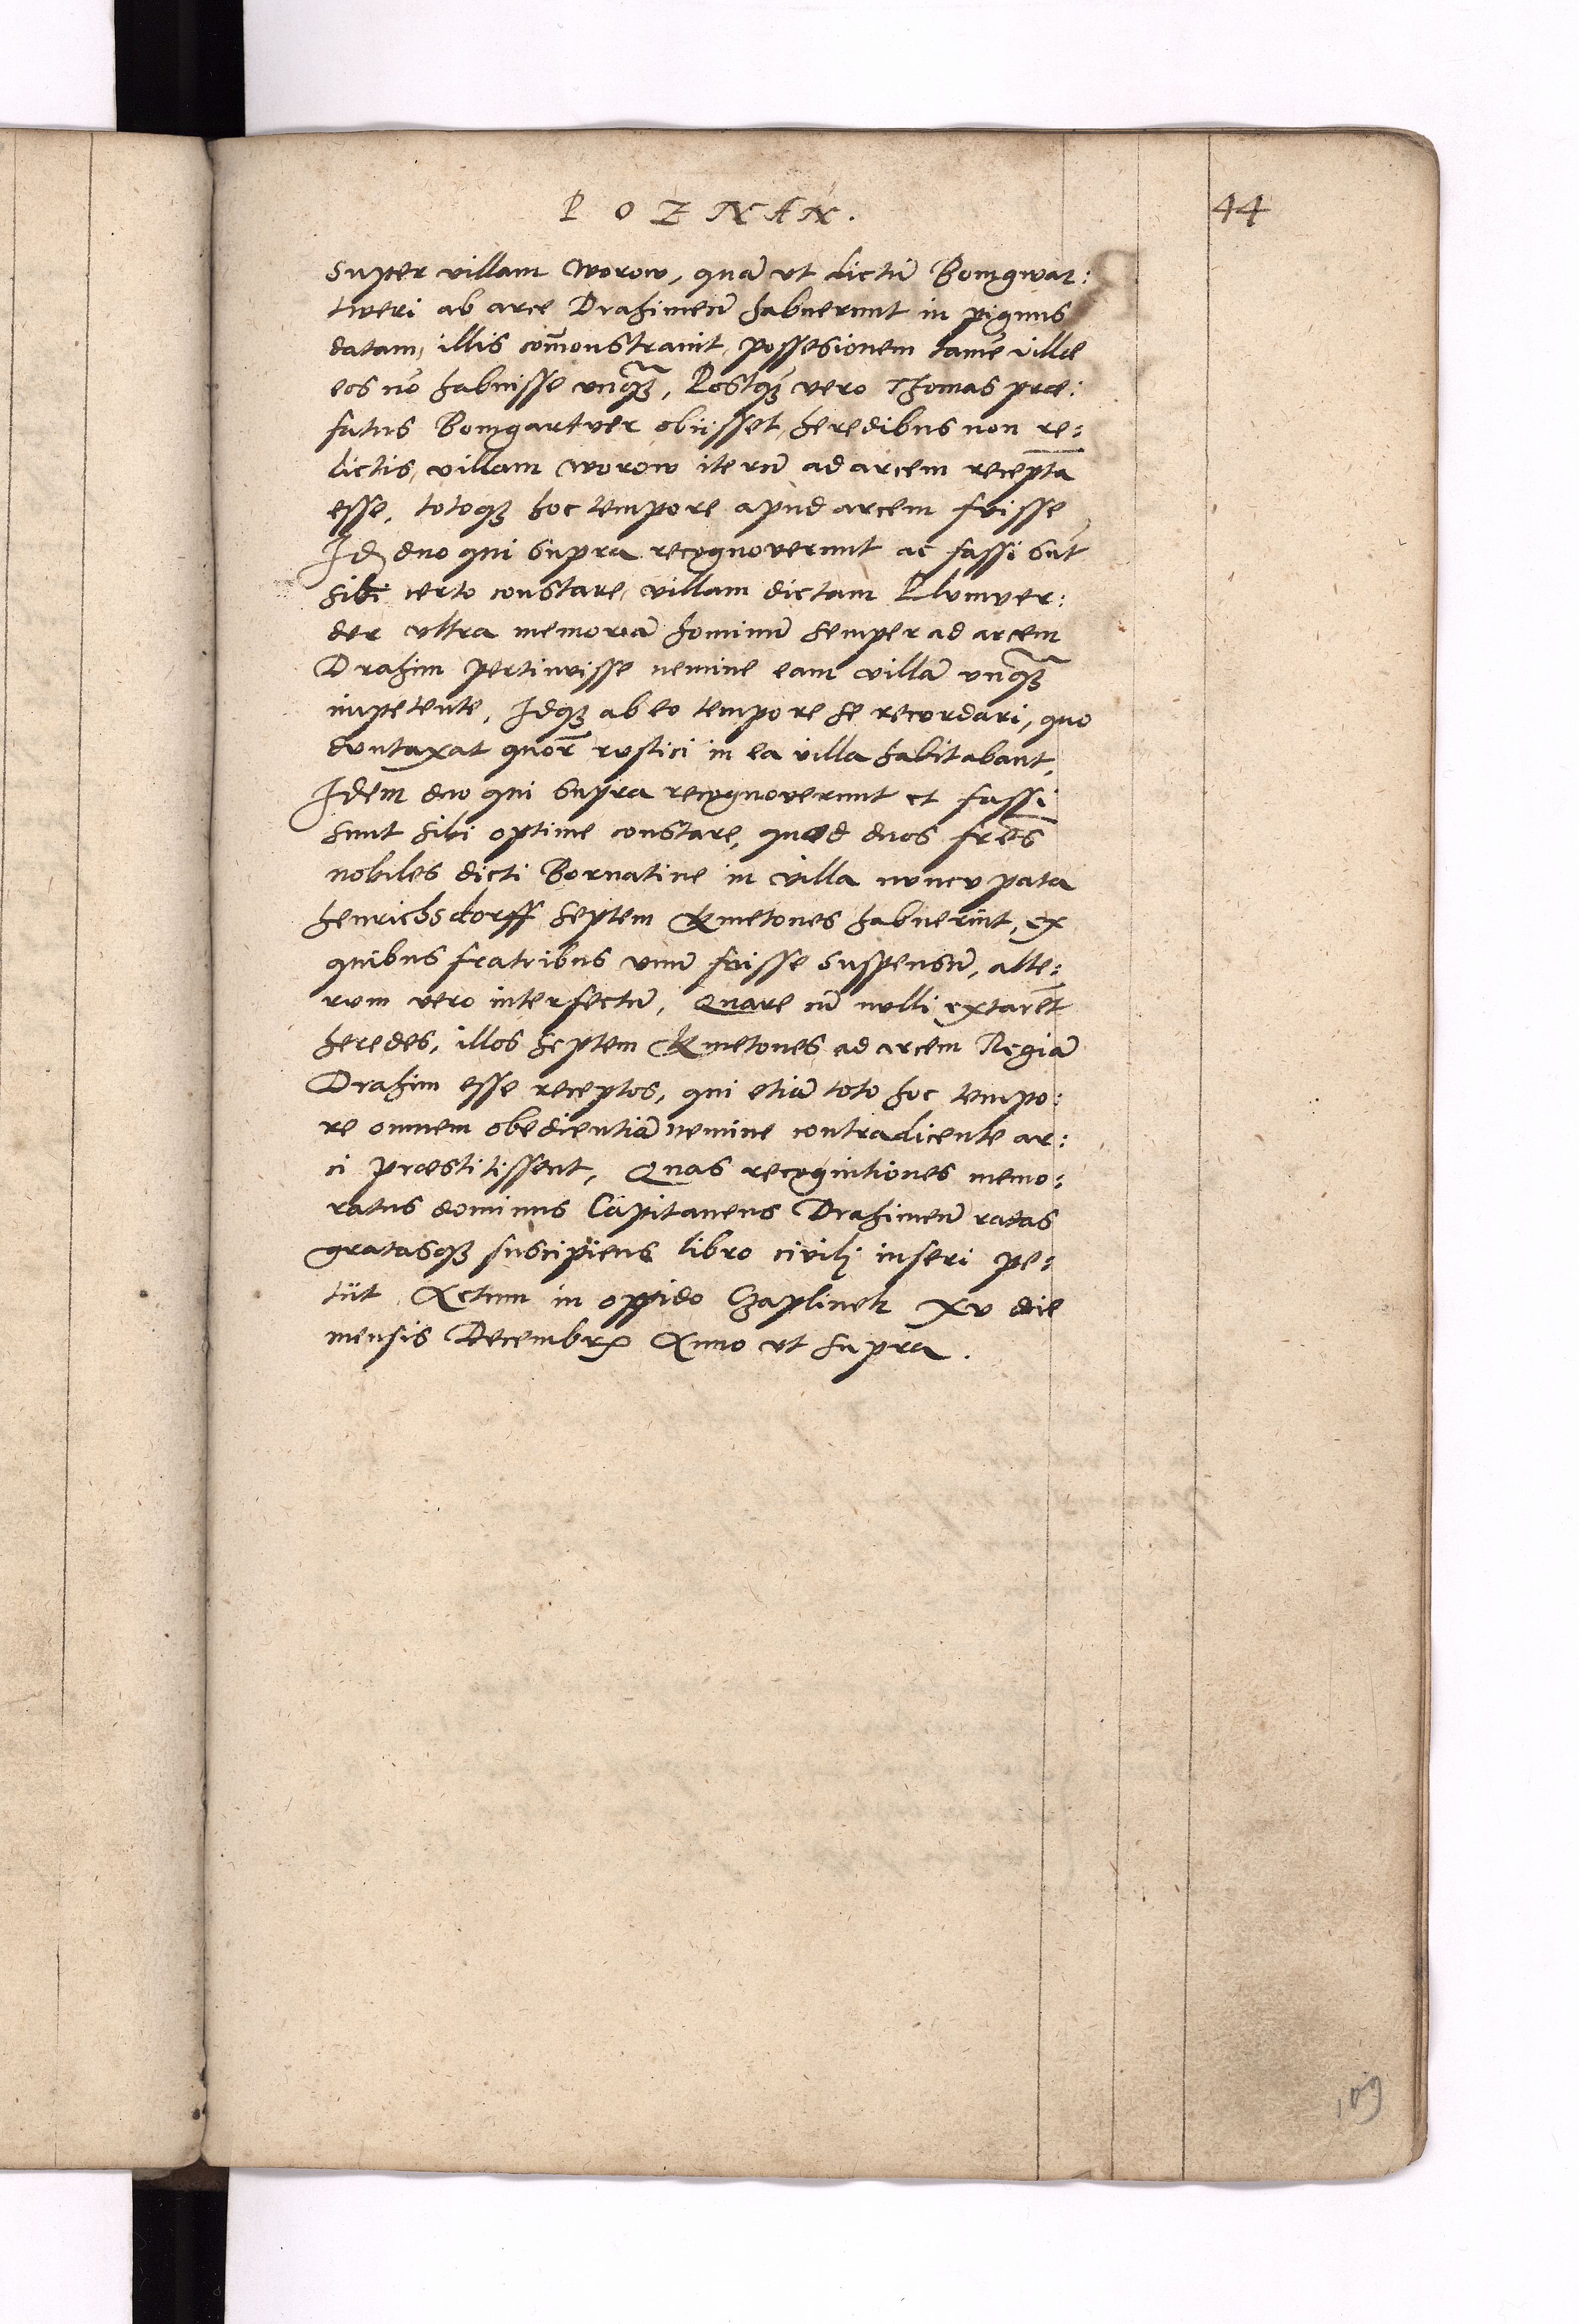 POZNAN.
44
super villam Worow, quā vt dictū Bomgwar:
tneri ab arce Drahimen̄ habuerunt in pignus
datam, illis com̄onstrauit, possesionem tamē villæ
eos nō habuisse vnqꝫ, Postqꝫ vero Thomas præ:
fatus Bomgartner obiisset, heredibus non re:
lictis, villam Worow iterū ad arcem receptā
esse, totoqꝫ hoc tempore apud arcem fuisse
Id duo qui supra recognoverunt ac fassi sūt
sibi certo constare, villam dictam Plumver:
der vltra memoriā hominū semper ad arcem
Drahim pertinuisse nemine eam villā vnqꝫ
impetente, Idqꝫ ab eo tempore se recordari, quo
duntaxat quor̄ rustici in ea villa habitabant,
Idem duo qui supra recognoverunt et fassi
sunt sibi optime constare, quod duos fr̄es
nobiles dicti Bornatine in villa nuncupata
Henrichsdorff septem Kmetones habuerīnt, ex
quibus fratribus vnū fuisse suspensū, alte:
rum vero interfectū, Quare cū nulli extarēt
heredes, illos septem Kmetones ad arcem Regiā
Drahim esse receptos, qui etiā toto hoc tempo:
re omnem obedientiā nemine contradicente ar:
ci præstitissent, Quas recognitiones memo:
ratus dominus Capitaneus Drahimen̄ ratas
gratasqꝫ suscipiens libro civilj inseri pe:
tiit Actum in oppido Czaplinek XV die
mensis Decembrꝭ Anno vt supra.
109